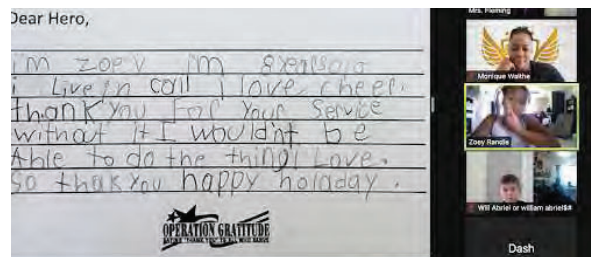 Dear Hero,
im zoey im 8 years old
i Live in coll I love cheer.
thank you For Your Service
without it I wouldn't be
Able to do the thing I Love.
so thak you happy holaday.
OPERATION GRATITUDE
Mrs. Fleming
Monique Waithe
Zoey Randle
Will Abriel or william abriel$#
Dash